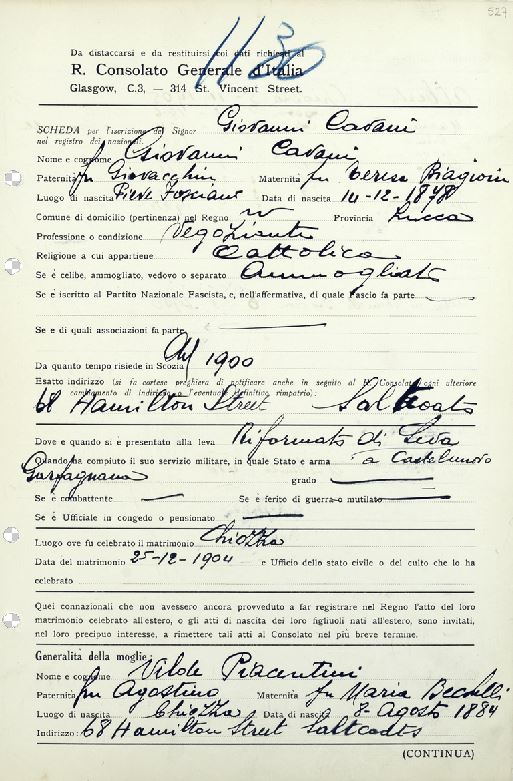 527
113
Da distaccarsi e da restituirsi coi dati richiesti al
R. Consolato Generale d'Italia
Glasgow, C.3, — 314 St. Vincent Street.
SCHEDA per l'iscrizione del Signor Giovanni Cavani
nel registro dei nazionali.
Nome e cognome Giovanni Cavani
Paternità fu Giovacchin Maternità fu Teresa Biagioni
Luogo di nascita Pieve Fosciana Data di nascita 14-12-1878
Comune di domicilio (pertinenza) nel Regno Provincia Lucca
Professione o condizione Negoziante
Religione a cui appartiene Cattolica
Se è celibe, ammogliato, vedovo o separato Ammogliato
Se è iscritto al Partito Nazionale Fascista, e, nell'affermativa, di quale Fascio fa parte
Se e di quali associazioni fa parte
Da quanto tempo risiede in Scozia 1900
Esatto indirizzo (si fa cortese preghiera di notificare anche in seguito al R. Consolato ogni ulteriore
cambiamento di indirizzo o l'eventuale definitivo rimpatrio):
68 Hamilton Street Saltcoats
Dove e quando si è presentato alla leva Riformato di Leva
Quando ha compiuto il suo servizio militare, in quale Stato e arma a Castelnuovo
Garfagnana grado
Se è combattente Se è ferito di guerra o mutilato
Se è Ufficiale in congedo o pensionato
Luogo ove fu celebrato il matrimonio Chiozza
Data del matrimonio 25-12-1904 e Ufficio dello stato civile o del culto che lo ha
celebrato
Quei connazionali che non avessero ancora provveduto a far registrare nel Regno l'atto del loro
matrimonio celebrato all'estero, o gli atti di nascita dei loro figliuoli nati all'estero, sono invitati,
nel loro precipuo interesse, a rimettere tali atti al Consolato nel più breve termine.
Generalità della moglie:
Nome e cognome Vilde Piacentini
Paternità fu Agostino Maternità fu Maria Bechelli
Luogo di nascita Chiozza Data di nascita 8-Agosto 1884
Indirizzo: 68 Hamilton Street Saltcoats
(CONTINUA)